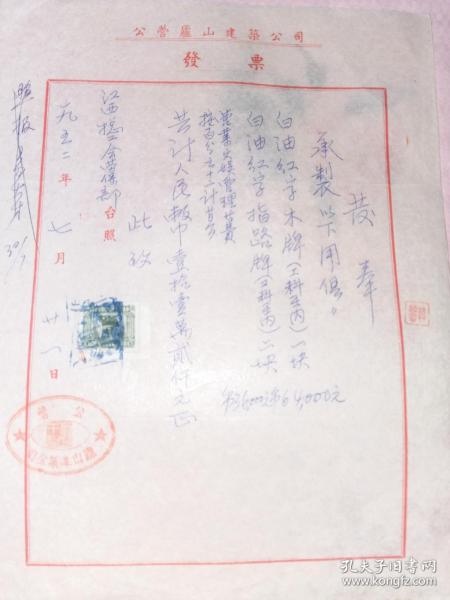 公營廬山建築公司
發票
茲奉
承製以下用俱。
白油紅字木牌(工料在內)一块
白油紅字指路牌(工料在內)二块
64,000元
營業及管理費
按百分之十二計算
共计人民幣壹拾壹萬貳仟元正
此致
江西 台照
一九五二年七月廿一日
照报
30/7
公營
廬山建築公司
孔夫子旧书网
kongfz.com